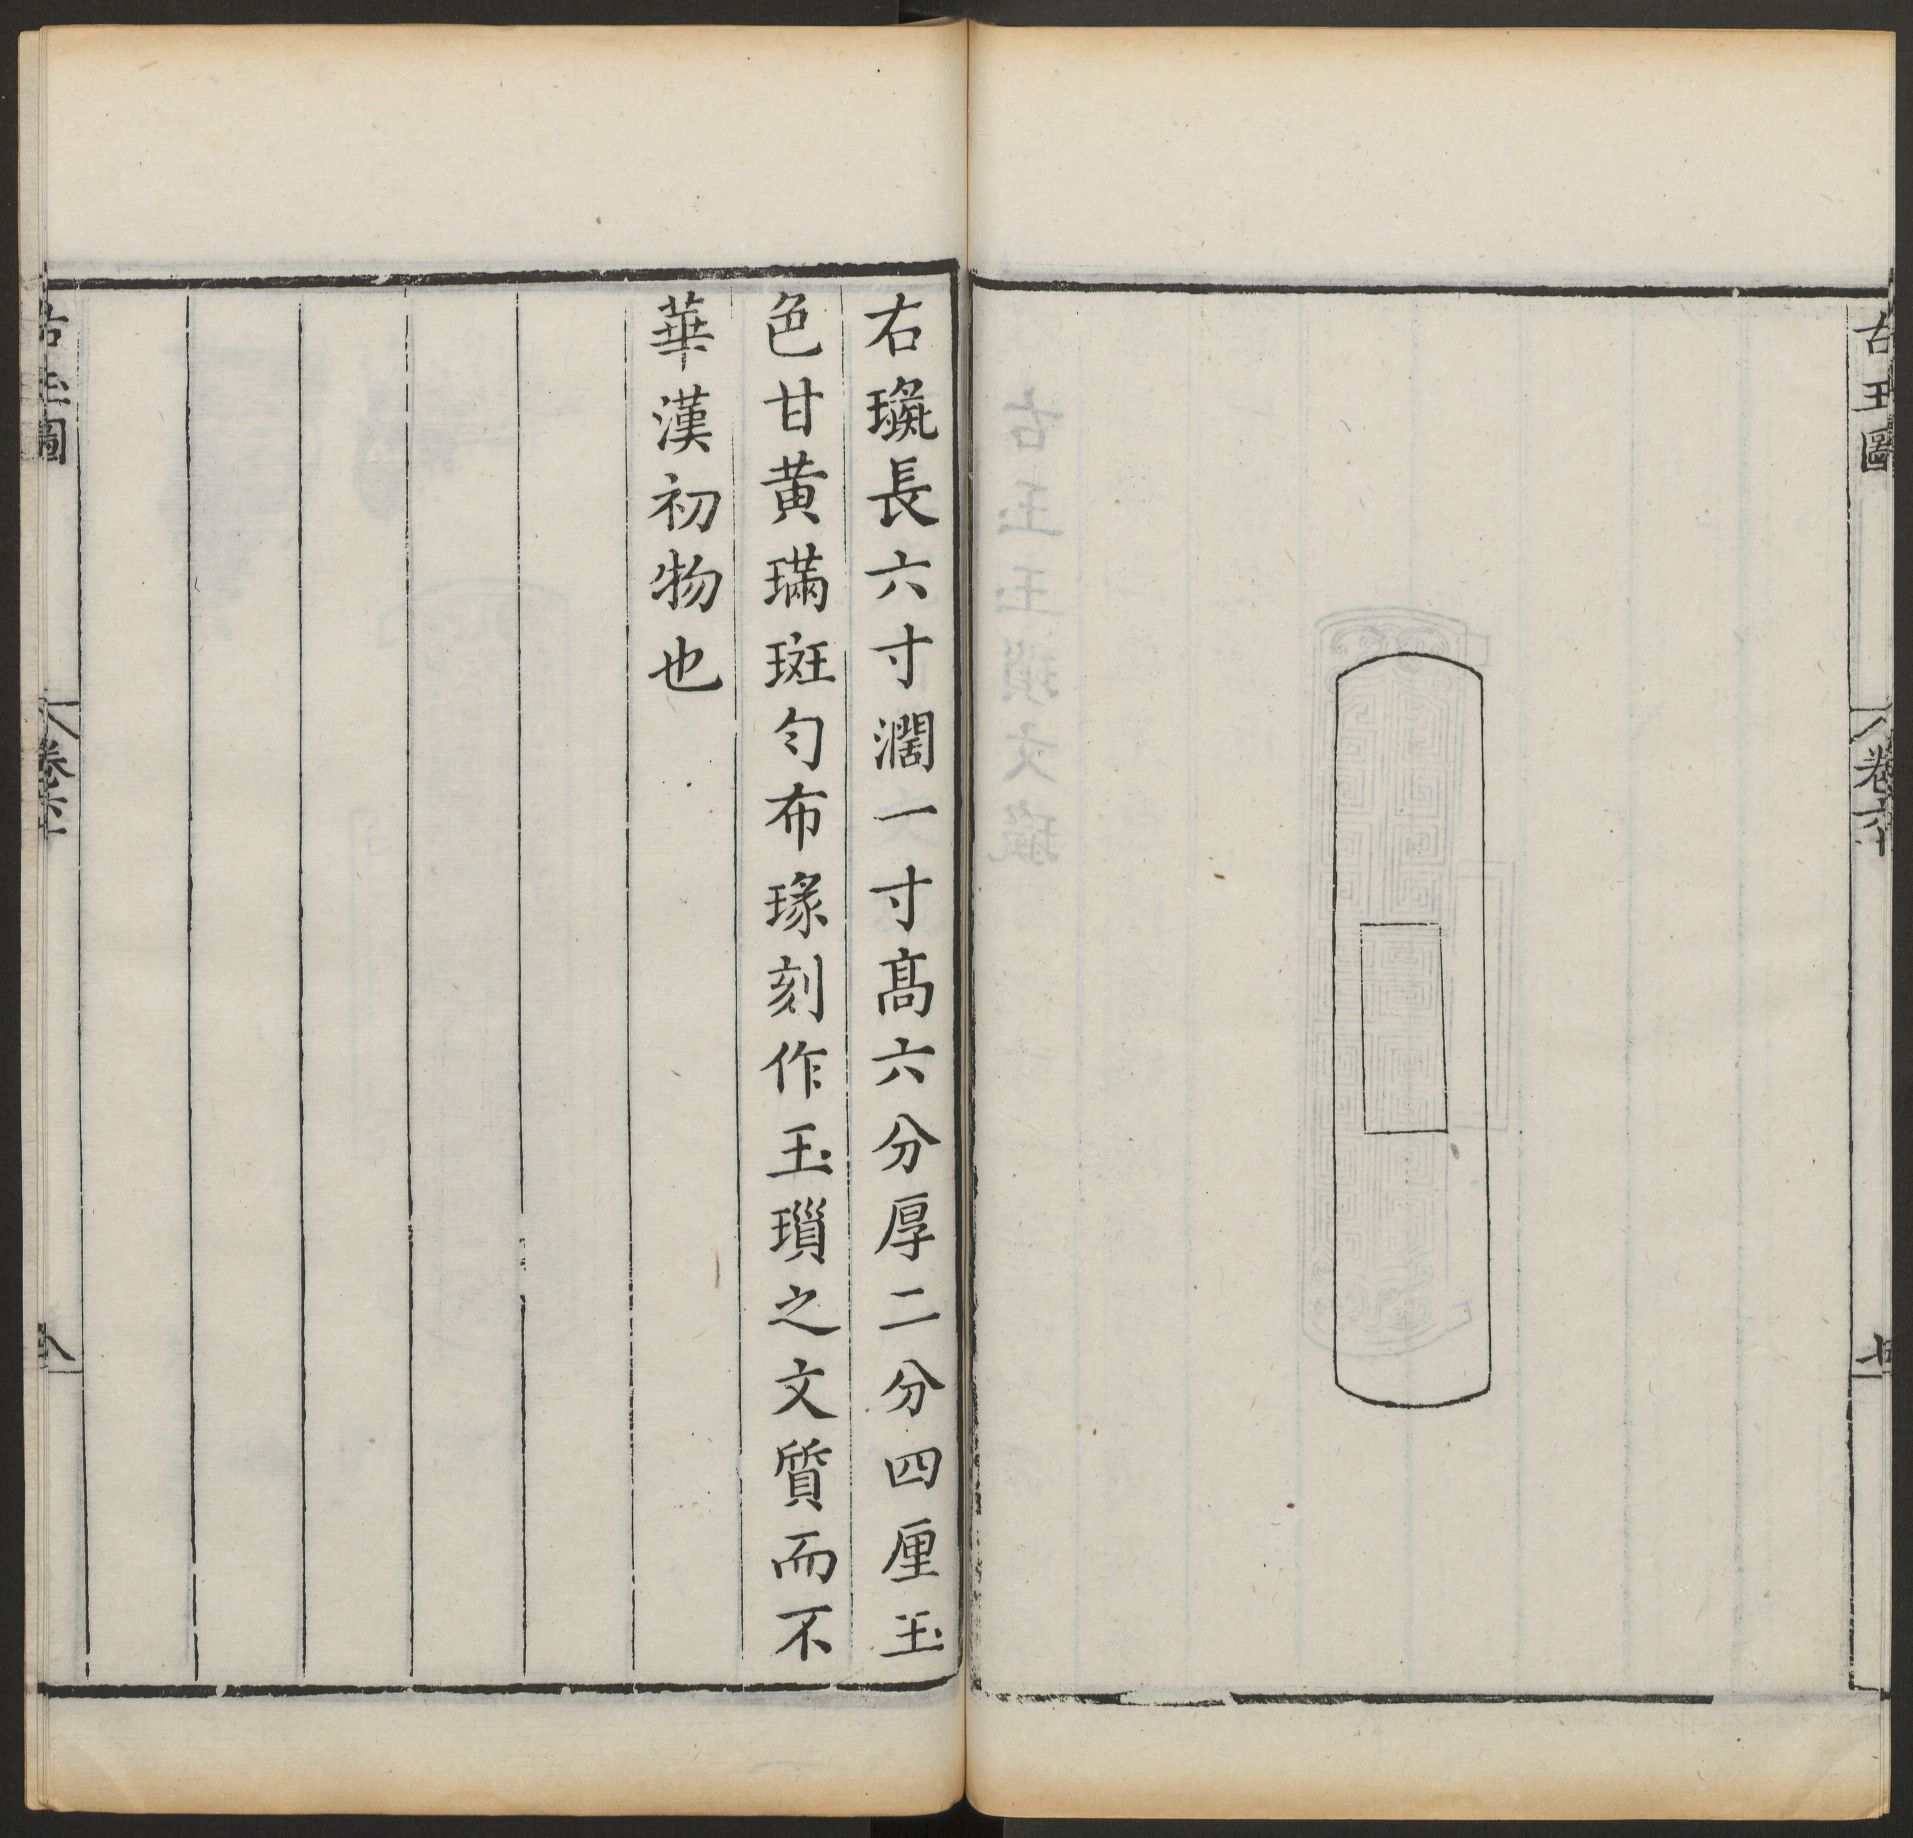 古玉圖
卷六
七
右璏長六寸濶一寸髙六分厚二分四厘玉
色甘黄璊斑勻布瑑刻作玉瑣之文質而不
華漢初物也
古玉圖
卷六
八